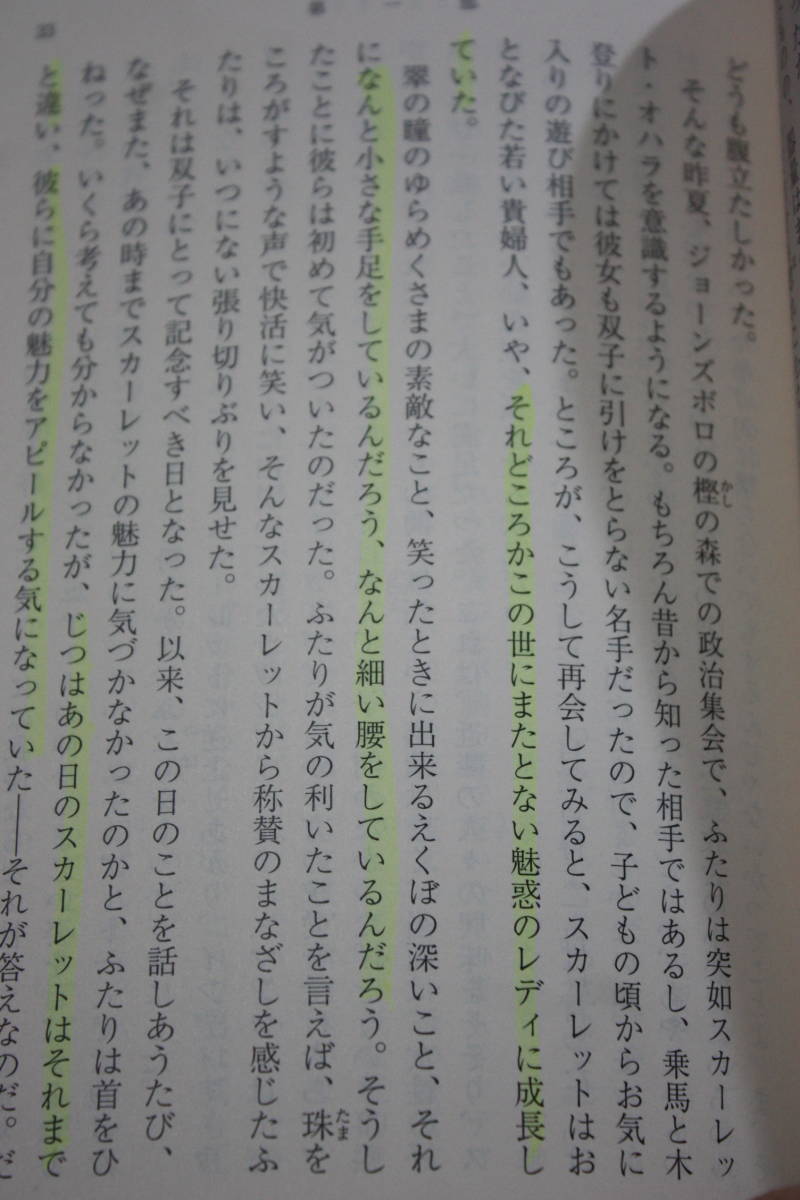 どうも腹立たしかった。
そんな昨夏、ジョーンズボロの樫の森での政治集会で、ふたりは突如スカーレッ
かし
ト・オハラを意識するようになる。もちろん昔から知った相手ではあるし、乗馬と木
登りにかけては彼女も双子に引けをとらない名手だったので、子どもの頃からお気に
入りの遊び相手でもあった。ところが、こうして再会してみると、スカーレットはお
となびた若い貴婦人、いや、それどころかこの世にまたとない魅惑のレディに成長し
ていた。
翠の瞳のゆらめくさまの素敵なこと、笑ったときに出来るえくぼの深いこと、それ
になんと小さな手足をしているんだろう、なんと細い腰をしているんだろう。そうし
たことに彼らは初めて気がついたのだった。ふたりが気の利いたことを言えば、珠を
たま
ころがすような声で快活に笑い、そんなスカーレットから称賛のまなざしを感じたふ
たりは、いつにない張り切りぶりを見せた。
それは双子にとって記念すべき日となった。以来、この日のことを話しあうたび、
なぜまた、あの時までスカーレットの魅力に気づかなかったのかと、ふたりは首をひ
ねった。いくら考えても分からなかったが、じつはあの日のスカーレットはそれまで
と違い、彼らに自分の魅力をアピールする気になっていた――それが答えなのだ。だ